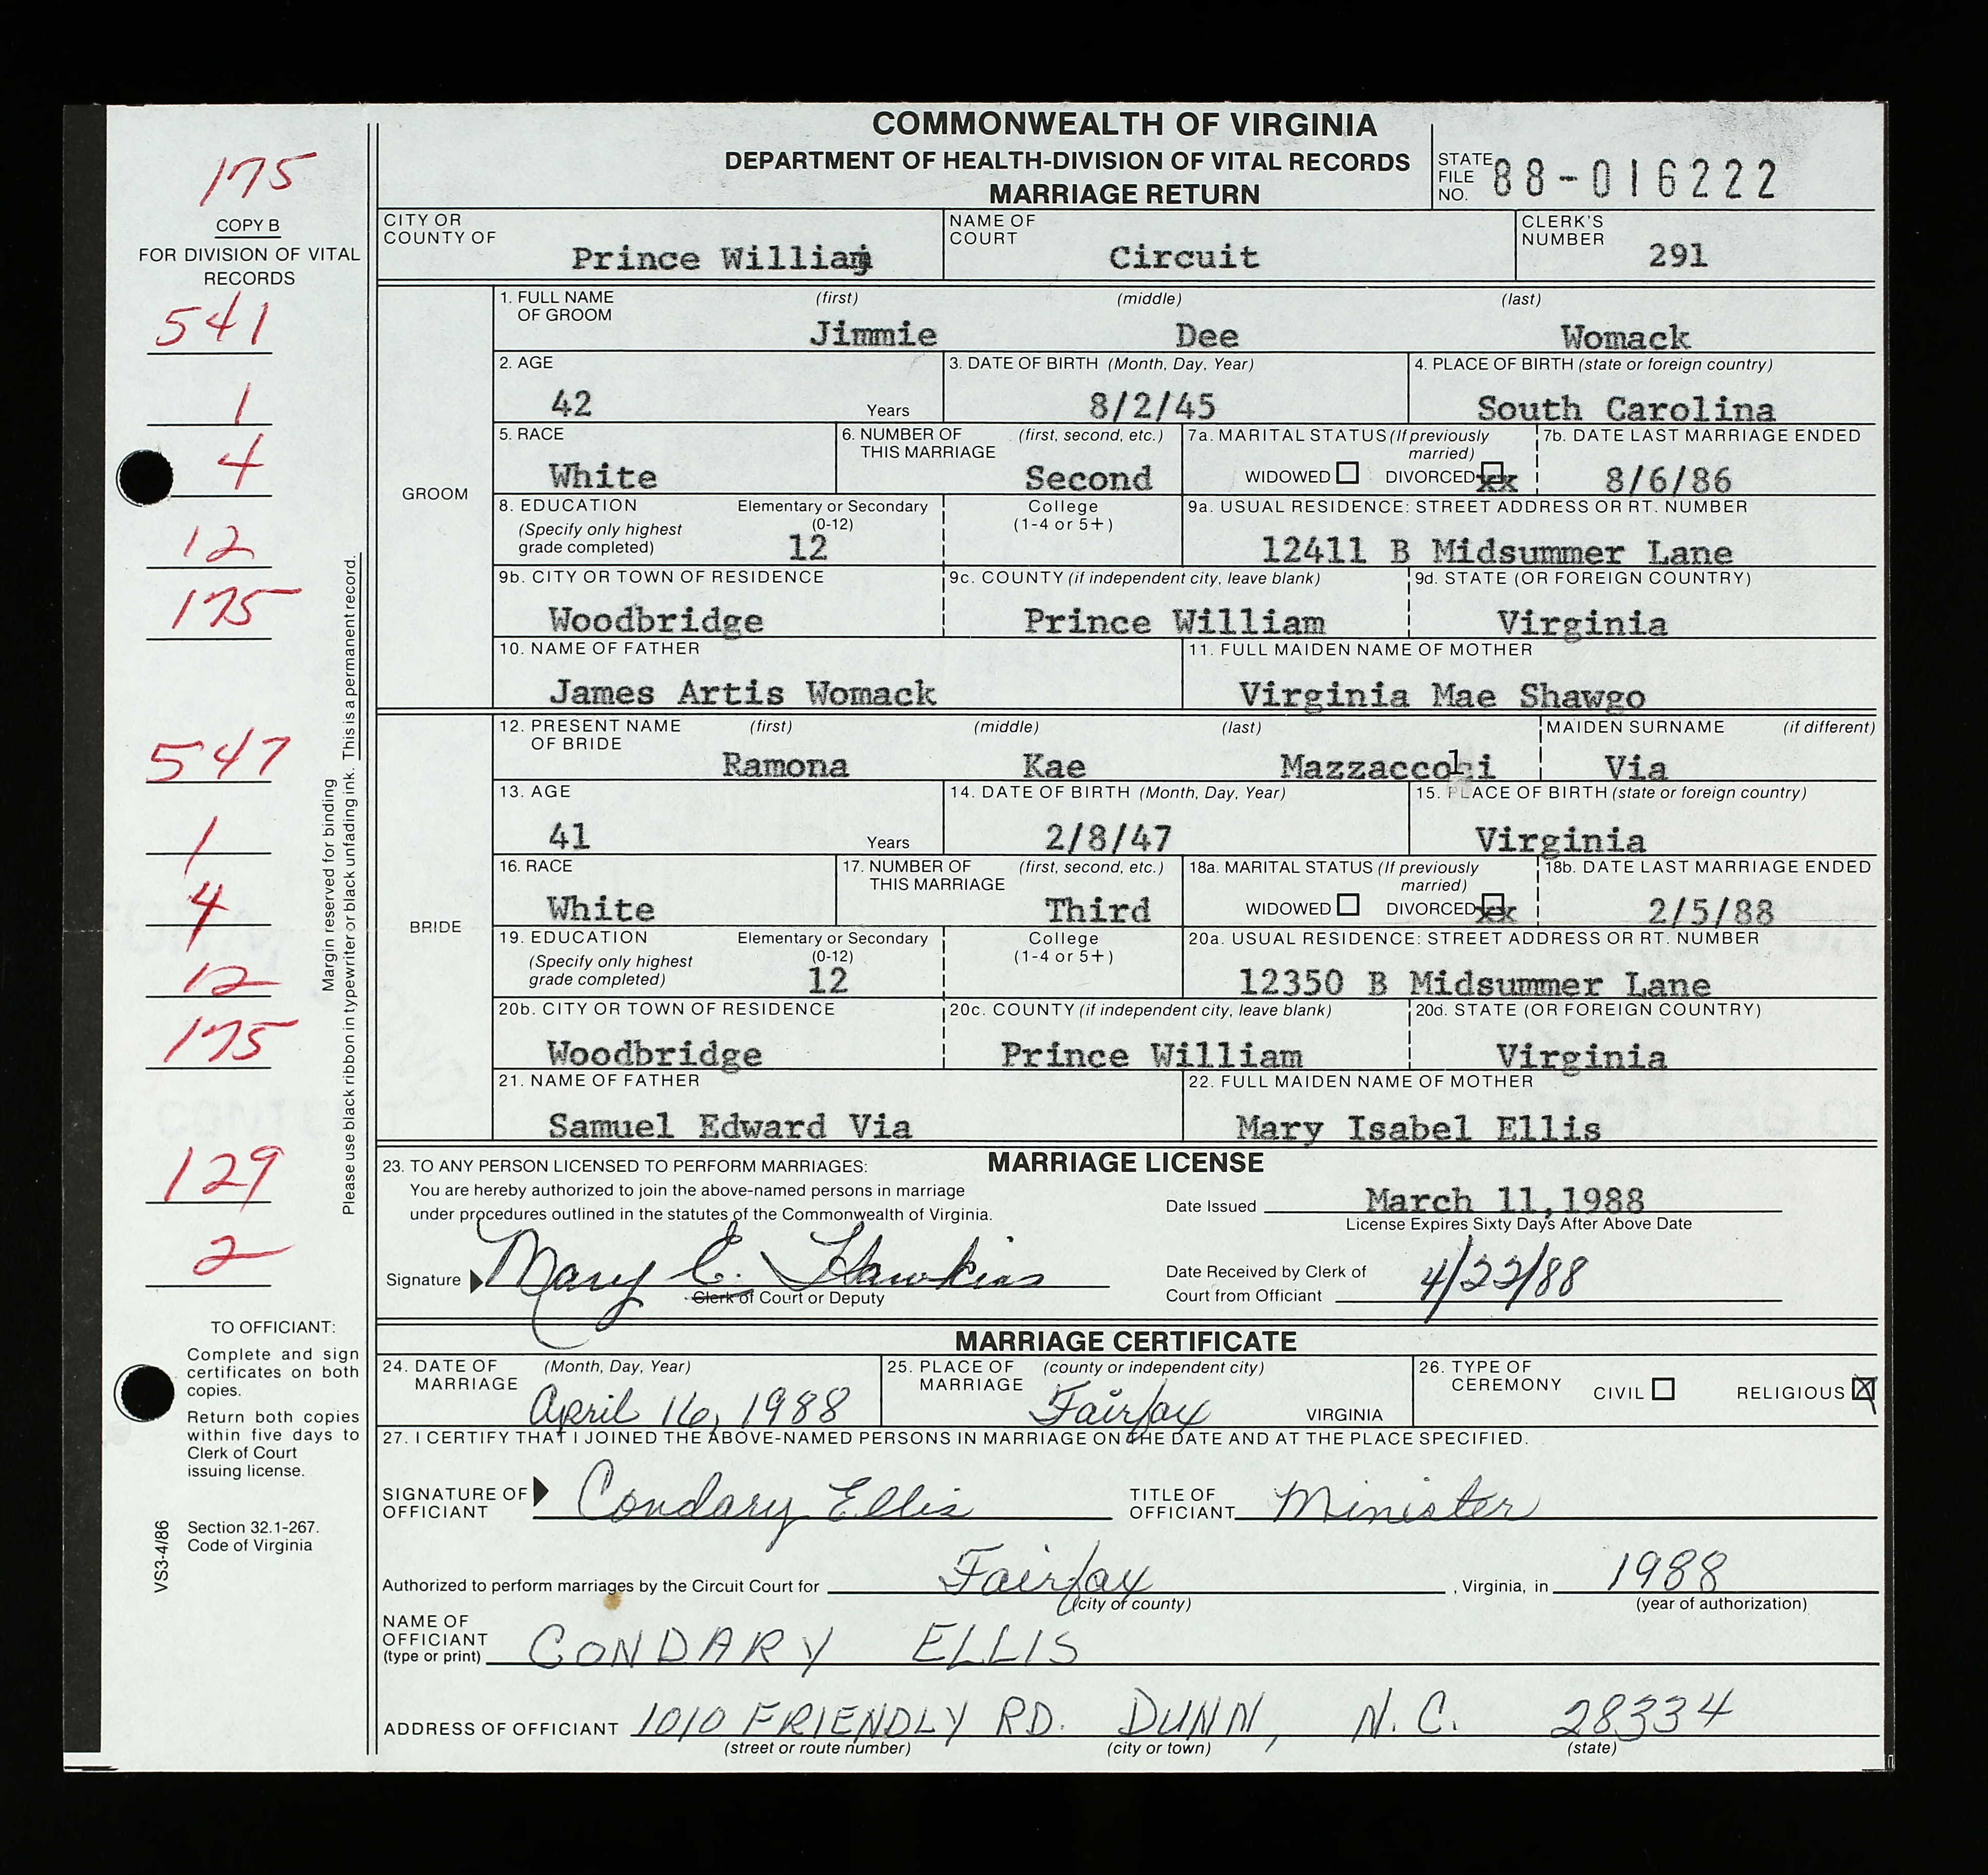 COMMONWEALTH OF VIRGINIA
DEPARTMENT OF HEALTH-DIVISION OF VITAL RECORDS
MARRIAGE RETURN
STATE FILE NO. 88-016222
175
COPY B
FOR DIVISION OF VITAL RECORDS
541
1
4
12
175
547
1
4
12
175
129
2
Margin reserved for binding
Please use black ribbon in typewriter or black unfading ink. This is a permanent record.
TO OFFICIANT:
Complete and sign
certificates on both
copies.
Return both copies
within five days to
Clerk of Court
issuing license.
Section 32.1-267.
Code of Virginia
VS3-4/86
CITY OR COUNTY OF Prince William
NAME OF COURT Circuit
CLERK'S NUMBER 291
GROOM
1. FULL NAME OF GROOM (first) Jimmie (middle) Dee (last) Womack
2. AGE 42 Years
3. DATE OF BIRTH (Month, Day, Year) 8/2/45
4. PLACE OF BIRTH (state or foreign country) South Carolina
5. RACE White
6. NUMBER OF THIS MARRIAGE (first, second, etc.) Second
7a. MARITAL STATUS (If previously married) WIDOWED DIVORCED xx
7b. DATE LAST MARRIAGE ENDED 8/6/86
8. EDUCATION (Specify only highest grade completed) Elementary or Secondary (0-12) 12 College (1-4 or 5+)
9a. USUAL RESIDENCE: STREET ADDRESS OR RT. NUMBER 12411 B Midsummer Lane
9b. CITY OR TOWN OF RESIDENCE Woodbridge
9c. COUNTY (if independent city, leave blank) Prince William
9d. STATE (OR FOREIGN COUNTRY) Virginia
10. NAME OF FATHER James Artis Womack
11. FULL MAIDEN NAME OF MOTHER Virginia Mae Shawgo
BRIDE
12. PRESENT NAME OF BRIDE (first) Ramona (middle) Kae (last) Mazzaccoli
MAIDEN SURNAME (if different) Via
13. AGE 41 Years
14. DATE OF BIRTH (Month, Day, Year) 2/8/47
15. PLACE OF BIRTH (state or foreign country) Virginia
16. RACE White
17. NUMBER OF THIS MARRIAGE (first, second, etc.) Third
18a. MARITAL STATUS (If previously married) WIDOWED DIVORCED xx
18b. DATE LAST MARRIAGE ENDED 2/5/88
19. EDUCATION (Specify only highest grade completed) Elementary or Secondary (0-12) 12 College (1-4 or 5+)
20a. USUAL RESIDENCE: STREET ADDRESS OR RT. NUMBER 12350 B Midsummer Lane
20b. CITY OR TOWN OF RESIDENCE Woodbridge
20c. COUNTY (if independent city, leave blank) Prince William
20d. STATE (OR FOREIGN COUNTRY) Virginia
21. NAME OF FATHER Samuel Edward Via
22. FULL MAIDEN NAME OF MOTHER Mary Isabel Ellis
MARRIAGE LICENSE
23. TO ANY PERSON LICENSED TO PERFORM MARRIAGES:
You are hereby authorized to join the above-named persons in marriage
under procedures outlined in the statutes of the Commonwealth of Virginia.
Date Issued March 11,1988
License Expires Sixty Days After Above Date
Signature Mary C. Hawkins
Clerk of Court or Deputy
Date Received by Clerk of Court from Officiant 4/22/88
MARRIAGE CERTIFICATE
24. DATE OF MARRIAGE (Month, Day, Year) April 16, 1988
25. PLACE OF MARRIAGE (county or independent city) Fairfax VIRGINIA
26. TYPE OF CEREMONY CIVIL RELIGIOUS X
27. I CERTIFY THAT I JOINED THE ABOVE-NAMED PERSONS IN MARRIAGE ON THE DATE AND AT THE PLACE SPECIFIED.
SIGNATURE OF OFFICIANT Condary Ellis
TITLE OF OFFICIANT Minister
Authorized to perform marriages by the Circuit Court for Fairfax, Virginia, in 1988
(city of county) (year of authorization)
NAME OF OFFICIANT (type or print) CONDARY ELLIS
ADDRESS OF OFFICIANT 1010 FRIENDLY RD. DUNN, N.C. 28334
(street or route number) (city or town) (state)